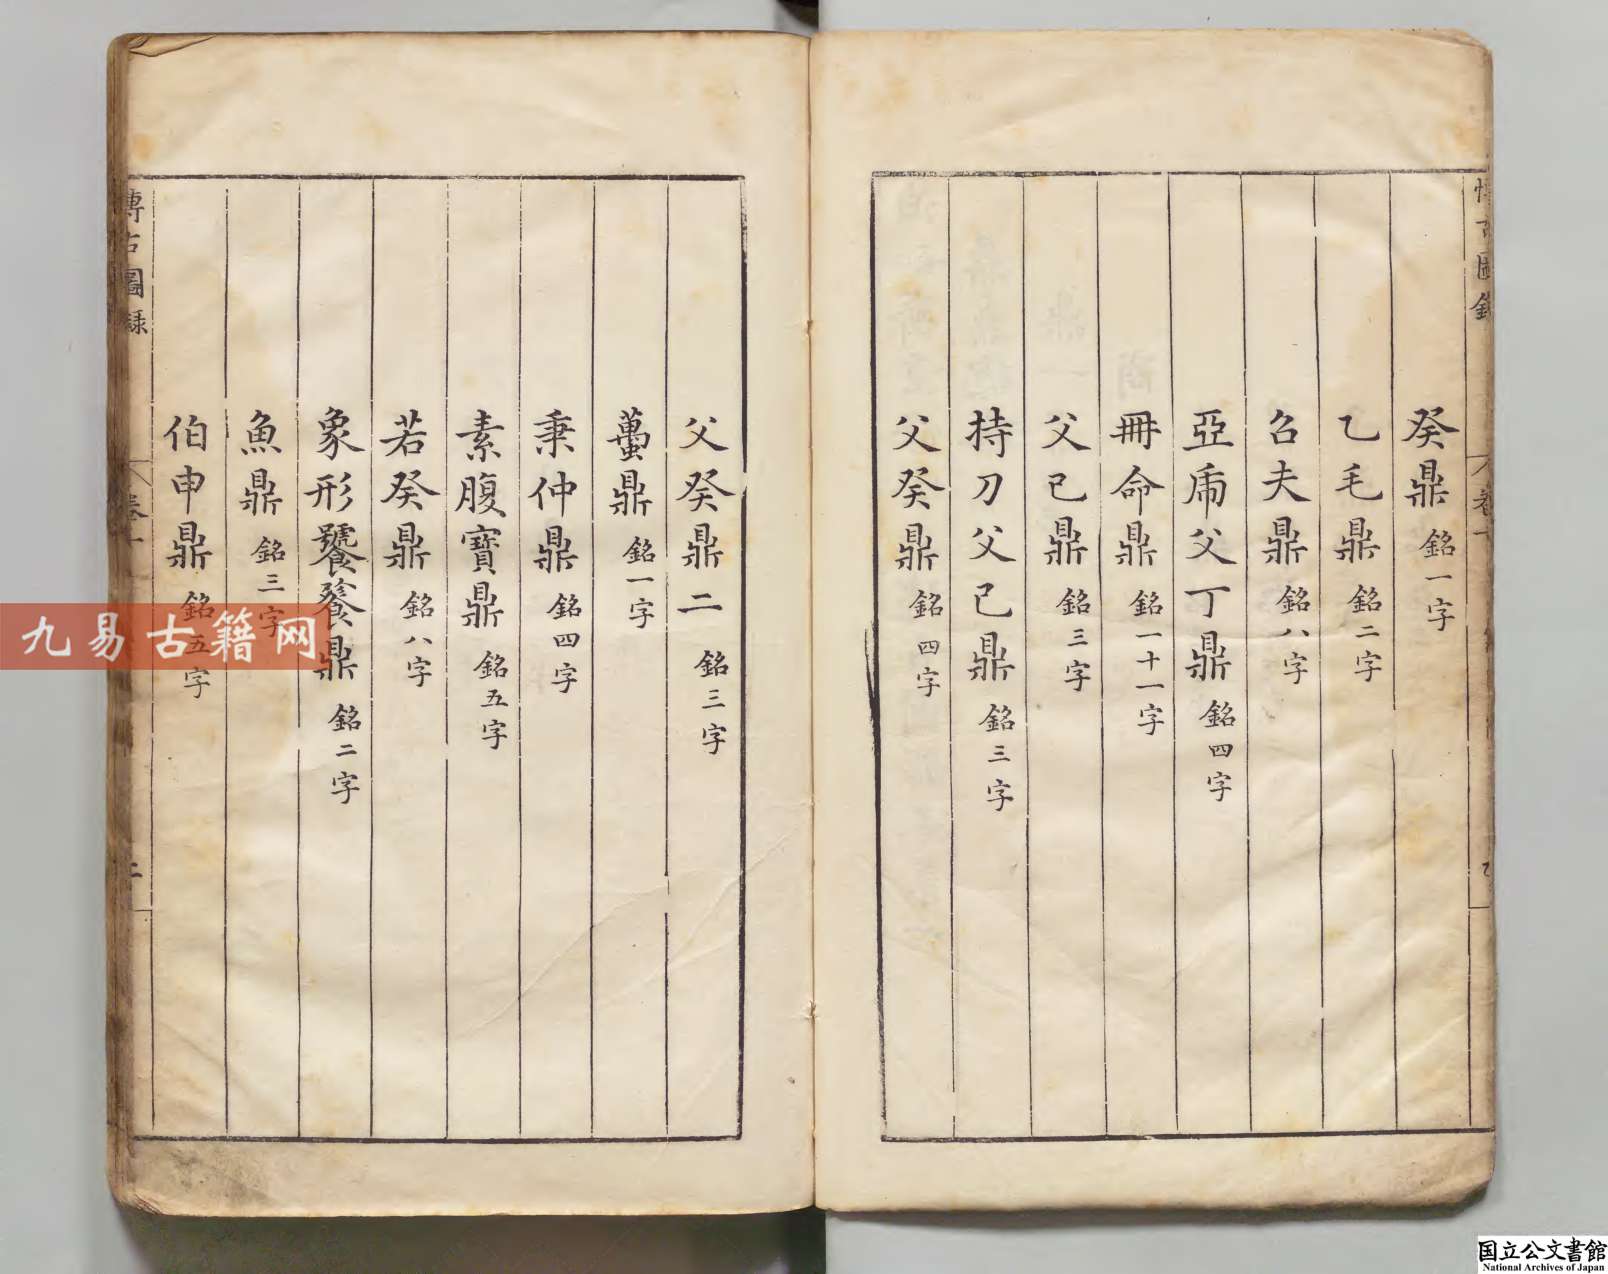 癸鼎 銘一字
乙毛鼎 銘二字
召夫鼎 銘八字
亞虎父丁鼎 銘四字
冊命鼎 銘一十一字
父己鼎 銘三字
持刀父己鼎 銘三字
父癸鼎 銘四字
父癸鼎二 銘三字
蠆鼎 銘一字
秉仲鼎 銘四字
素腹寶鼎 銘五字
若癸鼎 銘八字
象形饕餮鼎 銘二字
魚鼎 銘三字
伯申鼎 銘五字
博古圖錄
九易古籍网
国立公文書館
National Archives of Japan